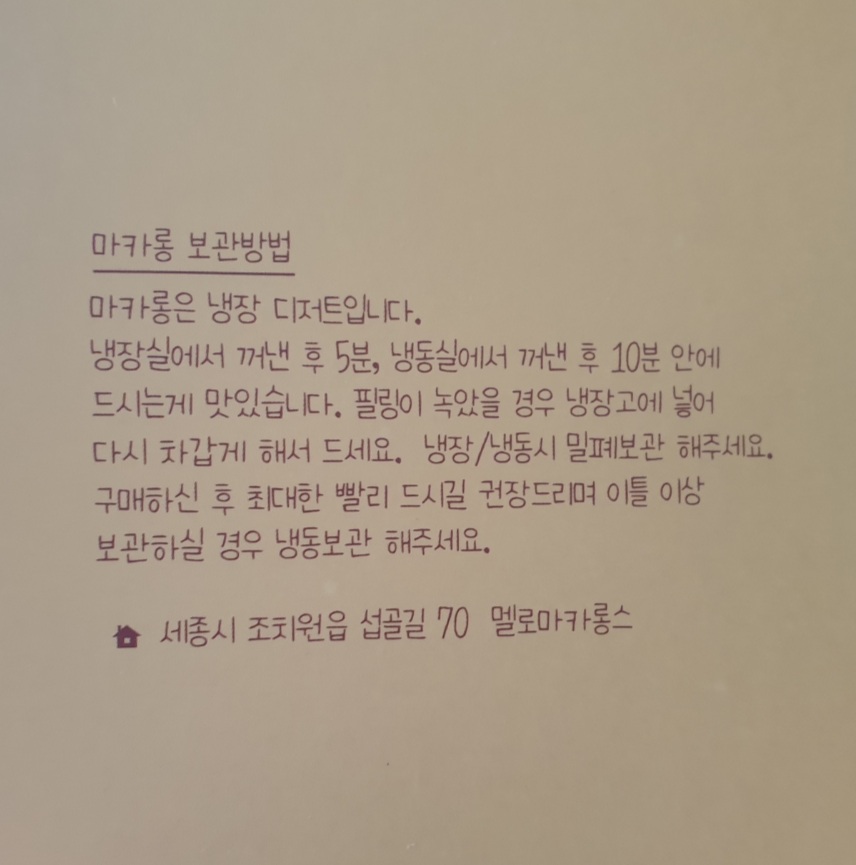 마카롱 보관방법
마카롱은 냉장 디저트입니다.
냉장실에서 꺼낸 후 5분, 냉동실에서 꺼낸 후 10분 안에
드시는게 맛있습니다. 필링이 녹았을 경우 냉장고에 넣어
다시 차갑게 해서 드세요. 냉장/냉동시 밀폐보관 해주세요.
구매하신 후 최대한 빨리 드시길 권장드리며 이틀 이상
보관하실 경우 냉동보관 해주세요.
세종시 조치원읍 섭골길 70 멜로마카롱스